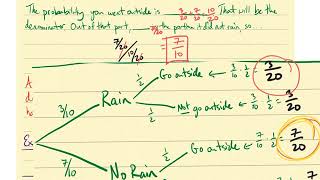 The probability you went outside is 3/20 + 7/20 = 10/20. That will be the
denominator. Out of that part, 7/20 is the part in it did not rain, so ..
7/20
10/20
=
7
10
A
d
h
1/2
Go outside ← 3/10 · 1/2 = 3/20
Rain
3/10
1/2
Not go outside ← 3/10 · 1/2 = 3/20
Ex
7/10
No Rain
1/2
Go outside ← 7/10 · 1/2 = 7/20